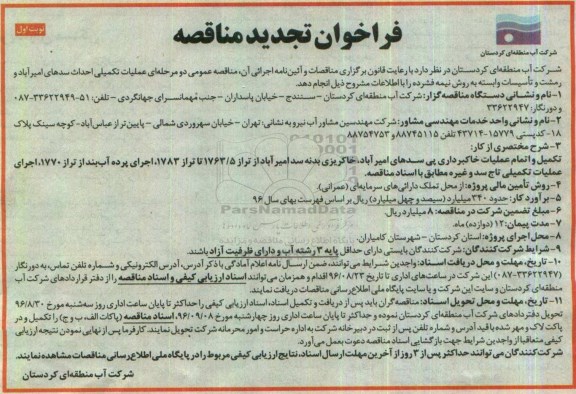 نوبت اول
فراخوان تجدید مناقصه
شرکت آب منطقه‌ای کردستان
شرکت آب منطقه‌ای کردستان در نظر دارد با رعایت قانون برگزاری مناقصات و آئین‌نامه اجرائی آن، مناقصه عمومی دو مرحله‌ای عملیات تکمیلی احداث سدهای امیرآباد و
رمشت و تأسیسات وابسته به روش نیمه فشرده را با اطلاعات مشروح ذیل انجام دهد.
۱- نام و نشانی دستگاه مناقصه‌گزار: شرکت آب منطقه‌ای کردستان - سنندج - خیابان پاسداران - جنب مهمانسرای جهانگردی - تلفن: ۵۱-۳۳۶۲۲۹۴۹-۰۸۷
و دورنگار: ۳۳۶۲۲۹۴۷
۲- نام و نشانی واحد خدمات مهندسی مشاور: شرکت مهندسین مشاور آب نیرو به نشانی: تهران - خیابان سهروردی شمالی - پایین‌تر از عباس‌آباد - کوچه سینک پلاک
۱۸- کدپستی ۱۵۷۷۹-۴۳۷۱۴ تلفن ۸۸۷۴۵۱۱۵ نمابر ۸۸۷۵۴۷۵۳
۳- شرح مختصری از کار:
تکمیل و اتمام عملیات خاکبرداری پی سدهای امیرآباد، خاکریزی بدنه سد امیرآباد از تراز ۱۷۶۳/۵ تا تراز ۱۷۸۳، اجرای پرده آب‌بند از تراز ۱۷۷۰، اجرای
عملیات تکمیلی تاج سد و غیره مطابق با اسناد مناقصه.
۴- روش تأمین مالی پروژه: از محل تملک دارائی‌های سرمایه‌ای (عمرانی)
۵- برآورد کار: حدود ۳۴۰ میلیارد (سیصد و چهل میلیارد) ریال بر اساس فهرست بهای سال ۹۶
۶- مبلغ تضمین شرکت در مناقصه: ۸ میلیارد ریال.
۷- مدت پیمان: ۱۲ (دوازده) ماه.
۸- محل اجرای پروژه: استان کردستان - شهرستان کامیاران.
۹- شرایط شرکت‌کنندگان: شرکت‌کنندگان بایستی دارای حداقل پایه ۳ رشته آب و دارای ظرفیت آزاد باشند.
۱۰- تاریخ، مهلت و محل دریافت اسناد: واجدین شرایط می‌توانند، ضمن ارسال نامه اعلام آمادگی با ذکر آدرس، آدرس الکترونیکی و شماره تلفن تماس، به دورنگار
(۳۳۶۲۲۹۴۷-۰۸۷) این شرکت در ساعت‌های اداری تا تاریخ ۹۶/۰۸/۲۳ اقدام و همزمان می‌توانند، اسناد ارزیابی کیفی و اسناد مناقصه را از دفتر قراردادهای شرکت آب
منطقه‌ای کردستان و سایت این شرکت و یا سایت پایگاه ملی اطلاع‌رسانی مناقصات دریافت نمایند.
۱۱- تاریخ، مهلت و محل تحویل اسناد: مناقصه‌گران باید پس از دریافت و تکمیل اسناد، اسناد ارزیابی کیفی را حداکثر تا پایان ساعت اداری روز سه‌شنبه مورخ ۹۶/۸/۳۰
تحویل دفتر قراردادهای شرکت آب منطقه‌ای کردستان نموده و حداکثر تا پایان ساعت اداری روز چهارشنبه مورخ ۹۶/۰۹/۰۸، اسناد مناقصه (پاکات الف، ب و ج) را تکمیل و در
پاکت لاک و مهر شده با قید آدرس و شماره تلفن پس از ثبت در دبیرخانه شرکت به اداره حراست و امور محرمانه شرکت تحویل نمایند. کارفرما پس از نهایی نمودن نتیجه ارزیابی
کیفی متعاقبا از واجدین شرایط جهت بازگشایی اسناد مناقصه دعوت بعمل می‌آورد.
شرکت‌کنندگان می‌توانند حداکثر پس از ۳ روز از آخرین مهلت ارسال اسناد، نتایج ارزیابی کیفی مربوط را در پایگاه ملی اطلاع‌رسانی مناقصات مشاهده نمایند.
شرکت آب منطقه‌ای کردستان
ParsNamadData